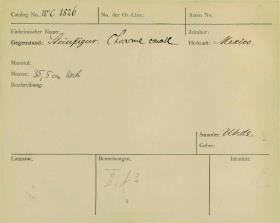 Catalog No. IV C 1826 No. der Or.-Liste: Akten No.
Einheimischer Name: Zeitalter:
Gegenstand: Steinfigur. Herkunft: Mexico.
Material:
Maasse: 35,5 cm hoch
Beschreibung:
Sammler: Uhde
Geber:
Literatur, Bemerkungen, Identität: